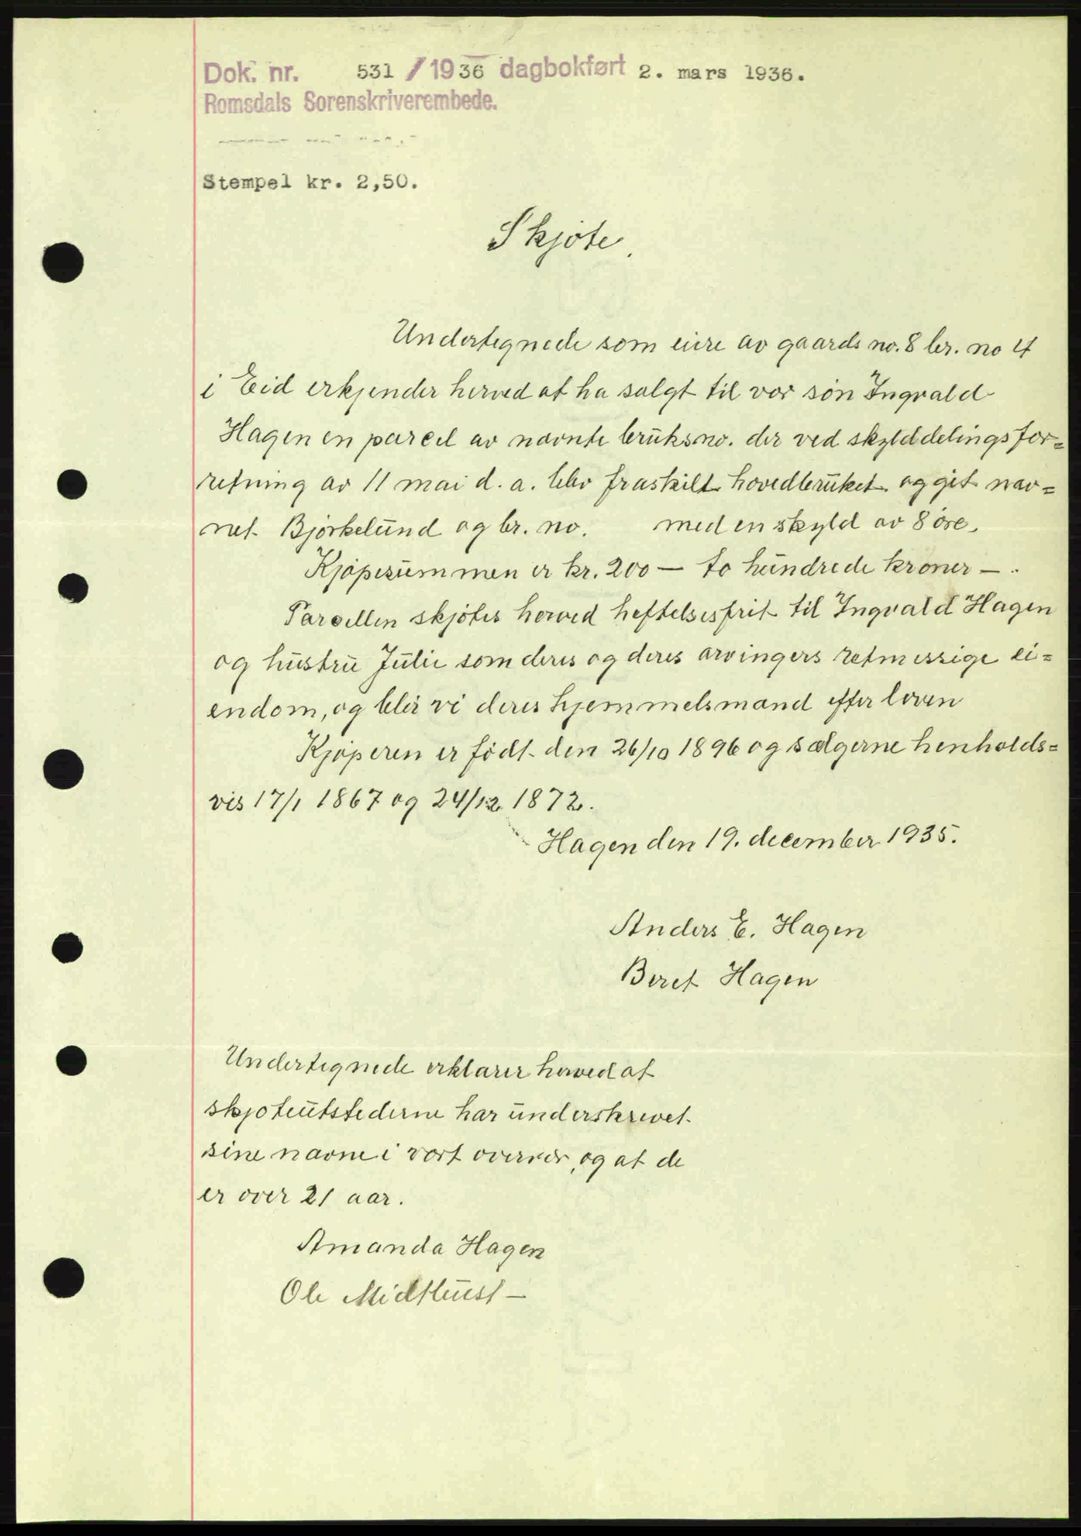 Dok. nr. 531 / 1936 dagbokført 2. mars 1936.
Romsdals Sorenskriverembede.
Stempel kr. 2,50.
Skjøte.
Undertegnede som eiere av gaards no. 8 br. no 4
i Eid erkjender herved at ha solgt til vor søn Ingvald
Hagen en parcel av nævnte bruksno. der ved skylddelingsfor=
retning av 11 mai d. a. blev fraskilt hovedbruket og git nav=
net Bjørkelund og br. no. med en skyld av 8 øre.
Kjøpesummen er kr. 200 — to hundrede kroner — .
Parcellen skjøtes herved heftelsesfrit til Ingvald Hagen
og hustru Julie som deres og deres arvingers retmessige ei=
endom, og blir vi deres hjemmelsmænd efter loven
Kjøperen er født den 26/10 1896 og sælgerne henholds=
vis 17/1 1867 og 24/12 1872.
Hagen den 19. december 1935.
Anders E. Hagen
Beret Hagen
Undertegnede erklærer herved at
skjøteutstederne har underskrevet
sine navne i vort overvær, og at de
er over 21 aar.
Amanda Hagen
Ole